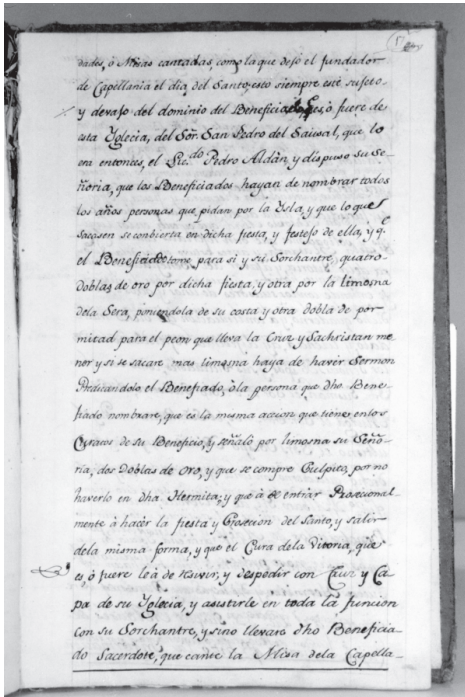 dades, ò Misas cantadas, como la que dejó el fundador
de Capellania el dia del Santo, esto siempre esté sujeto
y devajo del dominio del Beneficiado es, ò fuere de
esta Yglecia, del Sõr. San Pedro del Sausal, que lo
era entonces, el Lic.do Pedro Aldàn, y dispuso su Se-
ñoria, que los Beneficiados hayan de nombrar todos
los años personas que pidan por la Ysla, y que lo que
sacasen se conbierta en dicha fiesta, y festejo de ella, y q.e
el Beneficiado tome para si y su Sorchantre, quatro
doblas de oro por dicha fiesta, y otra por la limosna
dela Sera, poniendola de su costa y otra dobla de por
mitad para el peon que lleva la Cruz y Sachristan me
nor y si se sacare mas limosna haya de havèr Sermon
Predicandolo el Benefiado, ò la persona que dho Bene-
fiado nombrare, que es la misma accion que tiene en los
Curatos de su Beneficio, y señalò por limosna su Seño-
ria, dos doblas de oro, y que se compre Pulpito, por no
haverlo en dha Hermita; y que à de entrar Prosecional
mente à hacèr la fiesta y Prosecion del Santo, y salir
dela misma forma, y que el Cura dela Vitoria, que
es, ò fuere le à de resivir, y despedir con Cruz y Ca
pa de su Yglecia, y asistirle en toda la funcion
con su Sorchantre, y sino llevare dho Beneficia-
do Sacerdote, que cante la Misa dela Capella-